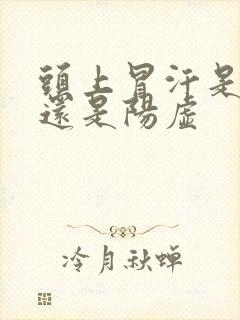 頭上冒汗是
還是陽虛
冷月秋蟬